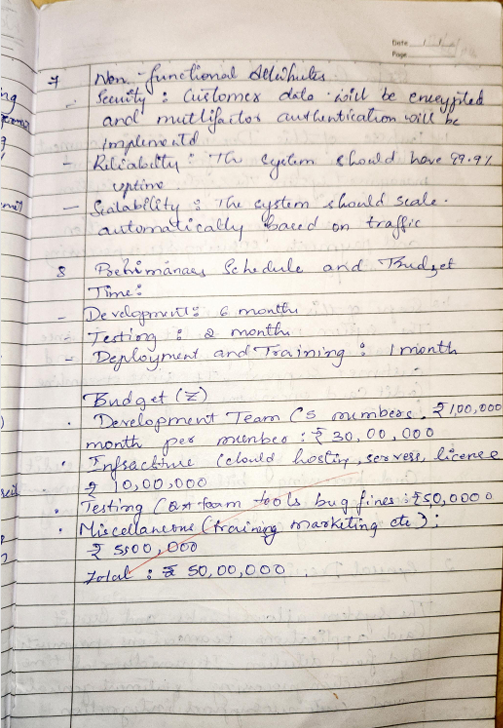 Date
Page
7 Non-functional Attributes
- Security : Customer data will be encrypted
and mutlifactor authentication will be
implemented
- Reliability : The system should have 99.9%
uptime
- Scalability : The system should scale.
automatically based on traffic
8 Schedule and Budget
Time :
- Development : 6 months
- Testing : 2 month
- Deployment and Training : 1 month
Budget (₹)
. Development Team (5 members. ₹100,000
month per member : ₹ 30,00,000
. (cloud hosting, servers, license
₹ 10,00,000
. Testing ( team tools bug fines : ₹50,0000
. Miscellaneous (training marketing etc) :
₹ 5500,000
Total : ₹ 50,00,000